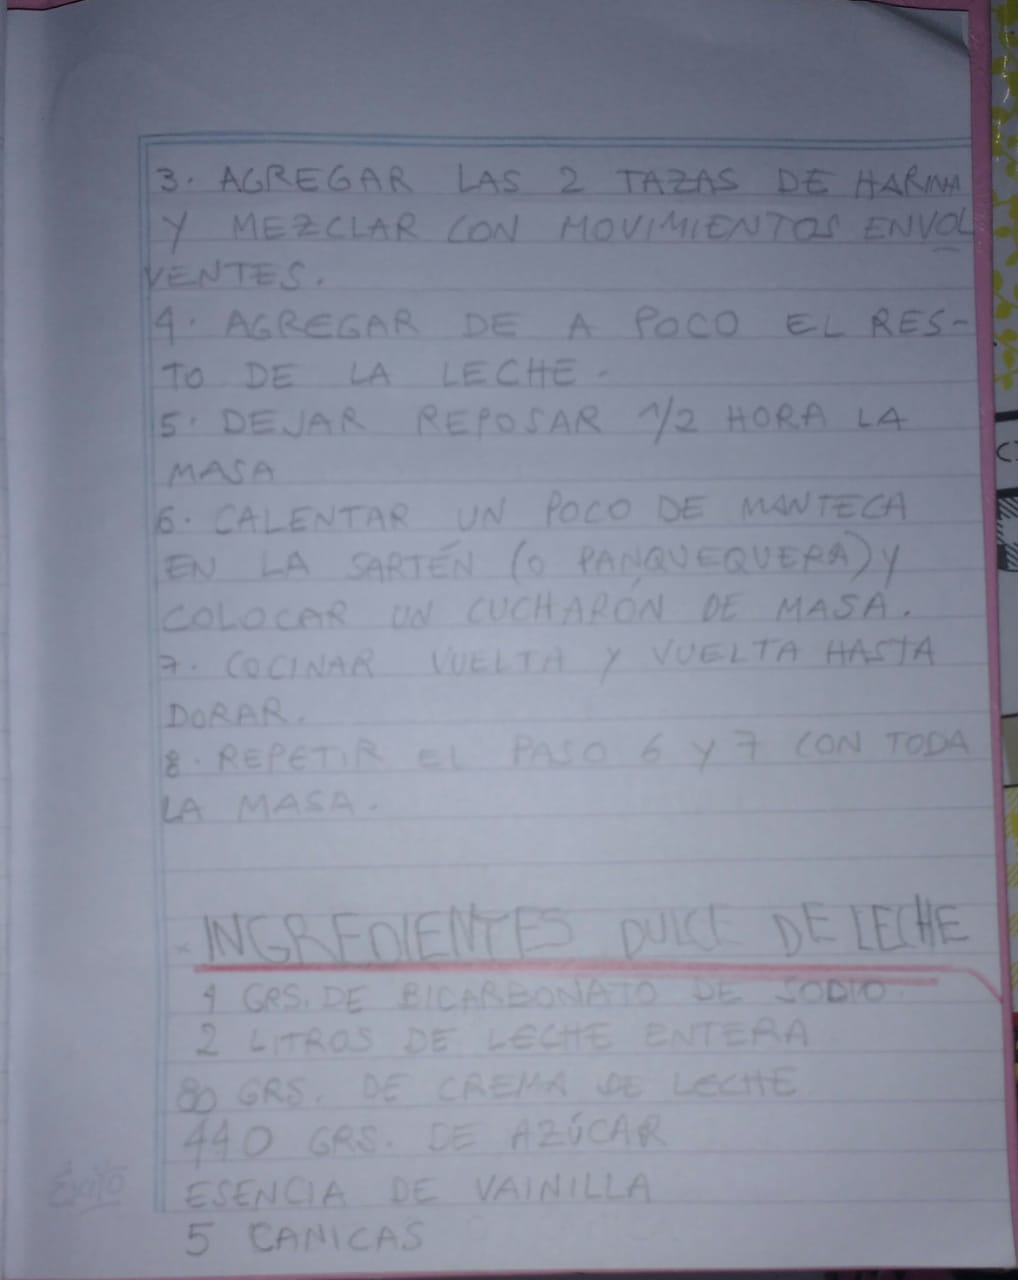 3. AGREGAR LAS 2 TAZAS DE HARINA
Y MEZCLAR CON MOVIMIENTOS ENVOL
VENTES.
4. AGREGAR DE A POCO EL RES-
TO DE LA LECHE.
5. DEJAR REPOSAR 1/2 HORA LA
MASA
6. CALENTAR UN POCO DE MANTECA
EN LA SARTÉN (O PANQUEQUERA) Y
COLOCAR UN CUCHARÓN DE MASA.
7. COCINAR VUELTA Y VUELTA HASTA
DORAR.
8. REPETIR EL PASO 6 Y 7 CON TODA
LA MASA.
INGREDIENTES DULCE DE LECHE
4 GRS. DE BICARBONATO DE SODIO.
2 LITROS DE LECHE ENTERA
80 GRS. DE CREMA DE LECHE
440 GRS. DE AZÚCAR
ESENCIA DE VAINILLA
5 CANICAS
Éxito